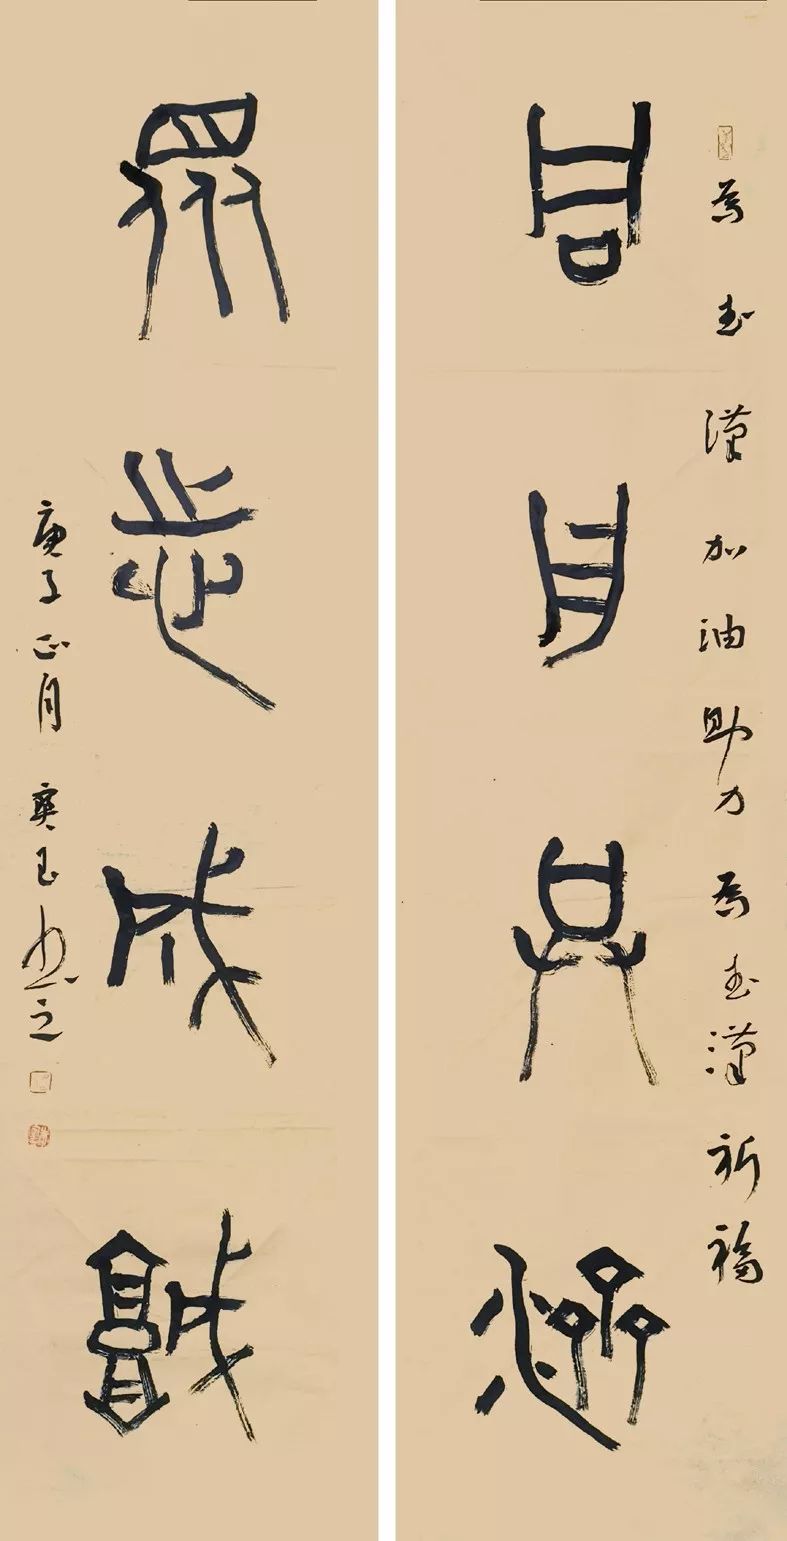 為武漢加油助力為武漢祈福
同舟共濟
眾志成城
庚子正月